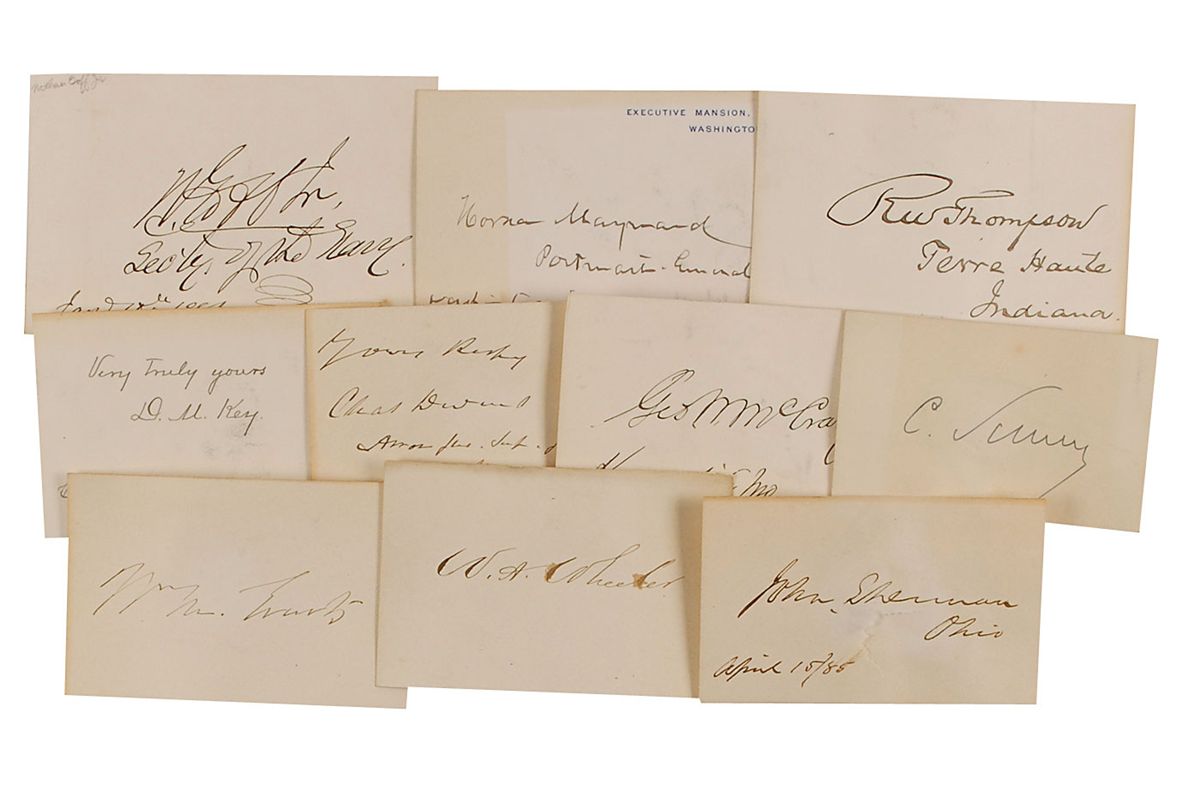 Nathan Goff Jr
N. Goff Jr,
Sec'ty. of the Navy.
EXECUTIVE MANSION,
WASHINGTO
Horace Maynard
Postmaster-General
R W Thompson
Terre Haute
Indiana.
Very truly yours
D. M. Key.
Yours Resky
Chas Devens
Geo W McCra
Mo
C. Schurz
Wm M. Evarts
W. A. Wheeler
John Sherman
Ohio
April 15/85